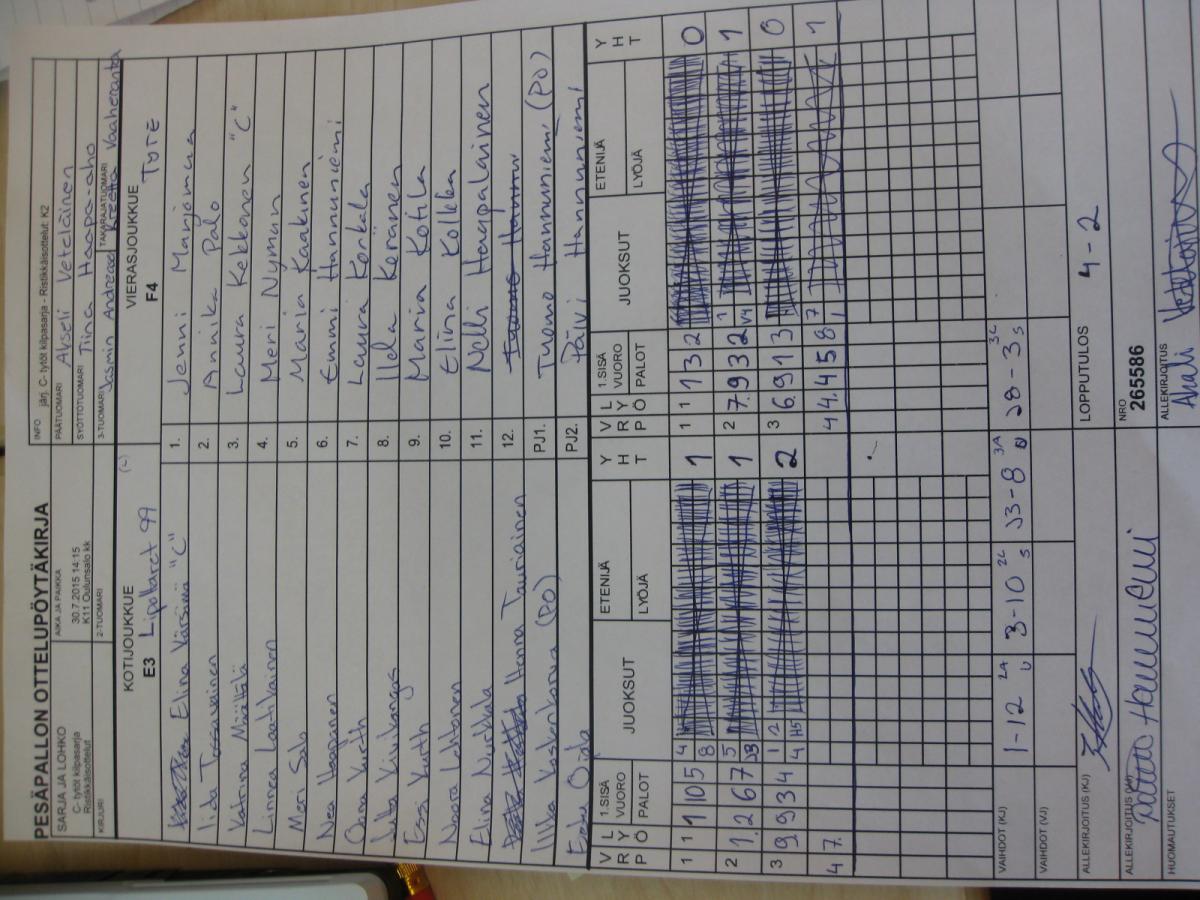 PESÄPALLON OTTELUPÖYTÄKIRJA
SARJA JA LOHKO
C- tytöt kilpasarja
Ristikkäisottelut
AIKA JA PAIKKA
30.7.2015 14:15
K11 Oulunsalo kk
INFO järj. C- tytöt kilpasarja - Ristikkäisottelut K2
PÄÄTUOMARI Akseli Veteläinen
SYÖTTÖTUOMARI Tiina Haapa-aho
KIRJURI
2-TUOMARI
3-TUOMARI Jasmin
TAKARAJATUOMARI Reetta Vaaheranta
KOTIJOUKKUE
E3 Lipottaret 99
VIERASJOUKKUE
F4 ToTe
Elina "C"
1. Jenni Marjomaa
Iida
2. Annika Palo
Katriina Määttälä
3. Laura Kekkonen "C"
Linnea Laatikainen
4. Meri Nyman
Meri Salo
5. Maria Kaakinen
Nea Haapanen
6. Emmi Hannuniemi
Oona Kurth
7. Laura Korkala
Julia
8. Iida Keränen
Essi Kurth
9. Maria Kotila
Noora Lehtonen
10. Elina Kolkka
Elina Nurkkala
11. Nelli Haapalainen
Henna Tauriainen
12.
Ilkka Koskenkorva (PO)
PJ1. Tuomo Hannuniemi (PO)
Ojala
PJ2. Päivi Hannuniemi
V P
L R Y Ö
1.SISÄ VUORO
PALOT
JUOKSUT
ETENIJÄ
LYÖJÄ
Y H T
V P
L R Y Ö
1.SISÄ VUORO
PALOT
JUOKSUT
ETENIJÄ
LYÖJÄ
Y H T
1 1 10 5 4 8 1
1 1 1 3 2 0
2 1. 2 6 7 5 1
2 7. 9 3 2 1 1
3 9. 9 3 4 1 2 4 2
3 6. 9 1 3 0
4 7.
4 4. 4 5 8 7 1 1
VAIHDOT (KJ) 1-12 3-10 3-8 28-3
VAIHDOT (VJ)
ALLEKIRJOITUS (KJ)
LOPPUTULOS 4-2
ALLEKIRJOITUS (VJ) Hannuniemi
NRO 265586
HUOMAUTUKSET
ALLEKIRJOITUS Akseli Veteläinen